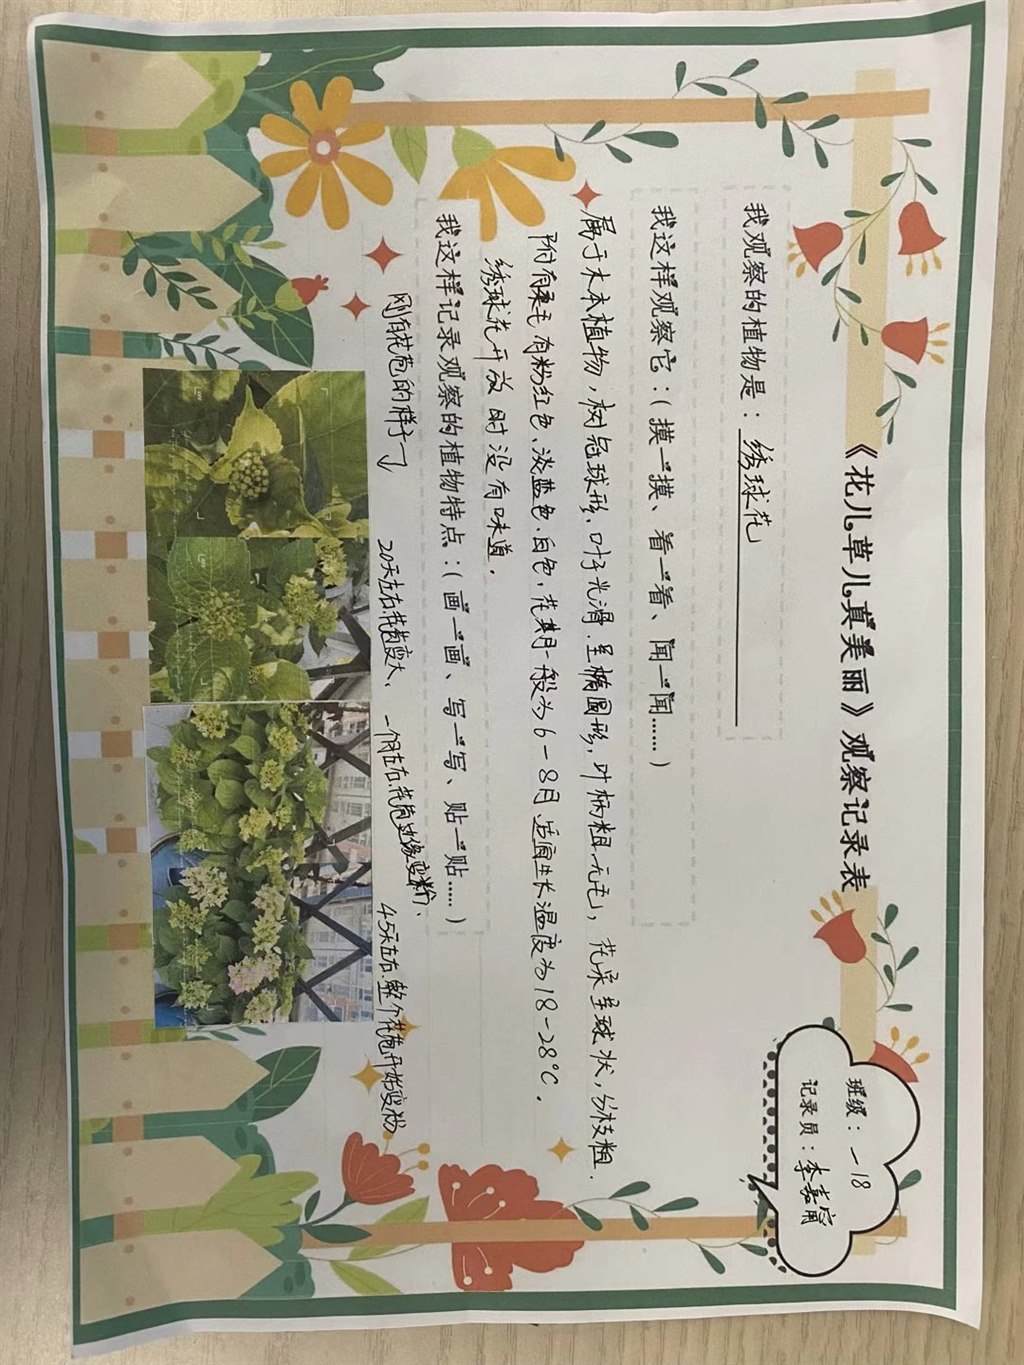 《花儿草儿真美丽》观察记录表
班级：一18
记录员：李嘉
我观察的植物是：绣球花
我这样观察它：（摸一摸、看一看、闻一闻……）
属于木本植物，树冠球形，叶子光滑，呈椭圆形，叶柄粗无毛，花朵呈球状，分枝粗.
附有柔毛 有粉红色、淡蓝色、白色，花期一般为6-8月 适宜生长温度为18-28℃.
绣球花开放时没有味道.
我这样记录观察的植物特点：（画一画、写一写、贴一贴……）
刚有花苞的样子
20天左右花苞变大、
一个月左右花苞边缘变粉、
45天左右、整个花苞开始变粉